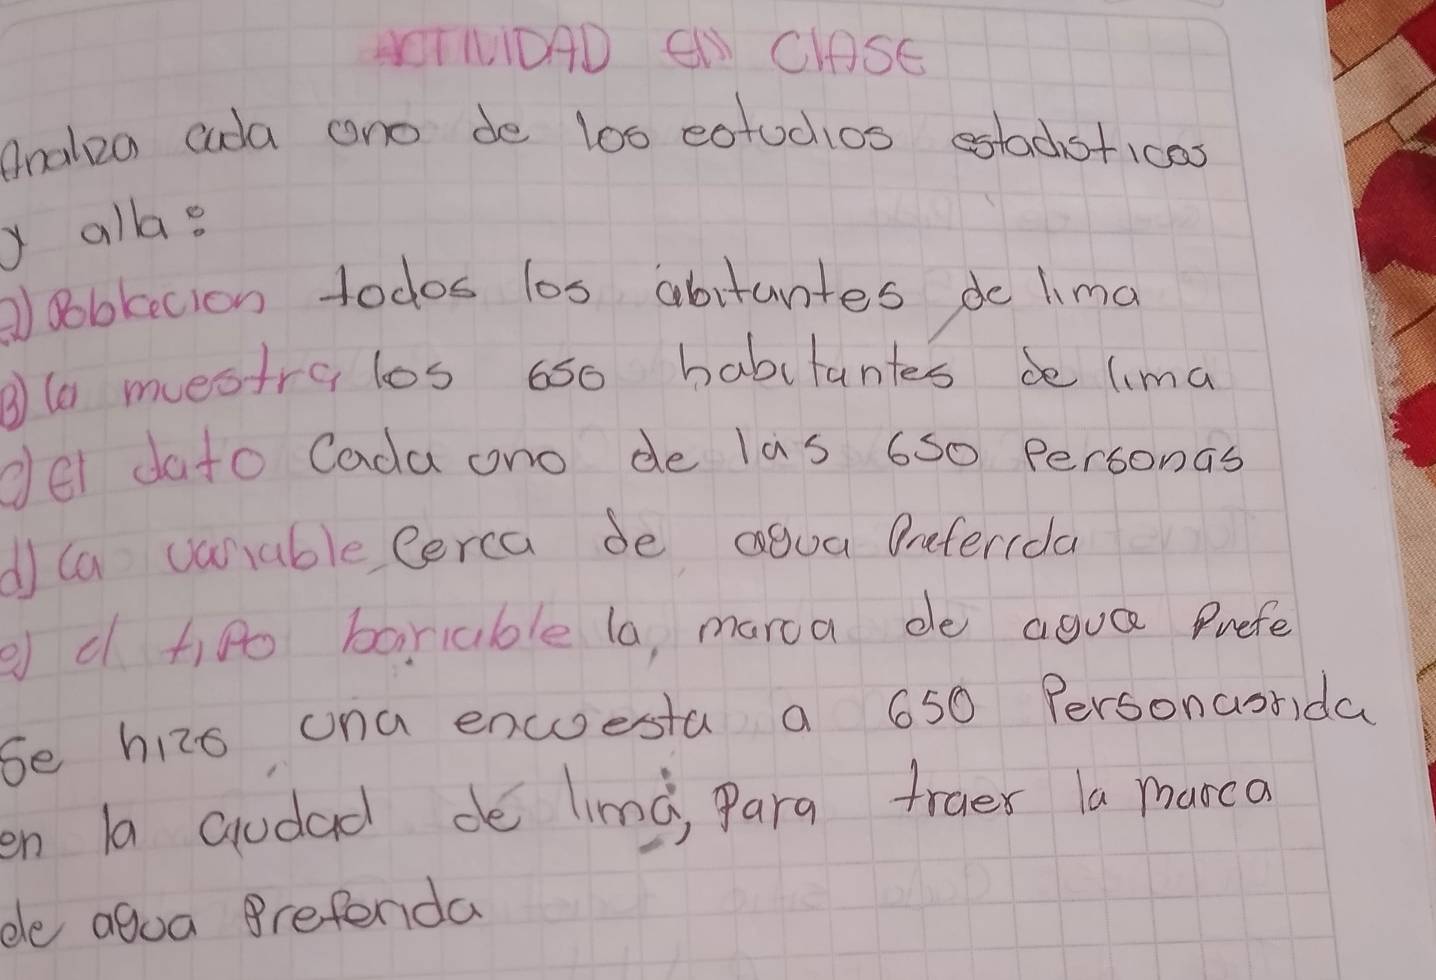 ACTIVIDAD EN CLASE
Analiza cada ono de los estudios estadisticos
y alla:
a) Pobkecion todos los abitantes de lima
B) la muestra los 650 habitantes de lima
c) el dato Cada ono de las 650 Personas
d) la variable, Cerca de agua Preferida
e) el tipo bariable la, marca de agua Prefe
Se hizo una encuesta a 650 Personasrida
en la ciudad de lima, Para traer la marca
de agua Preferida